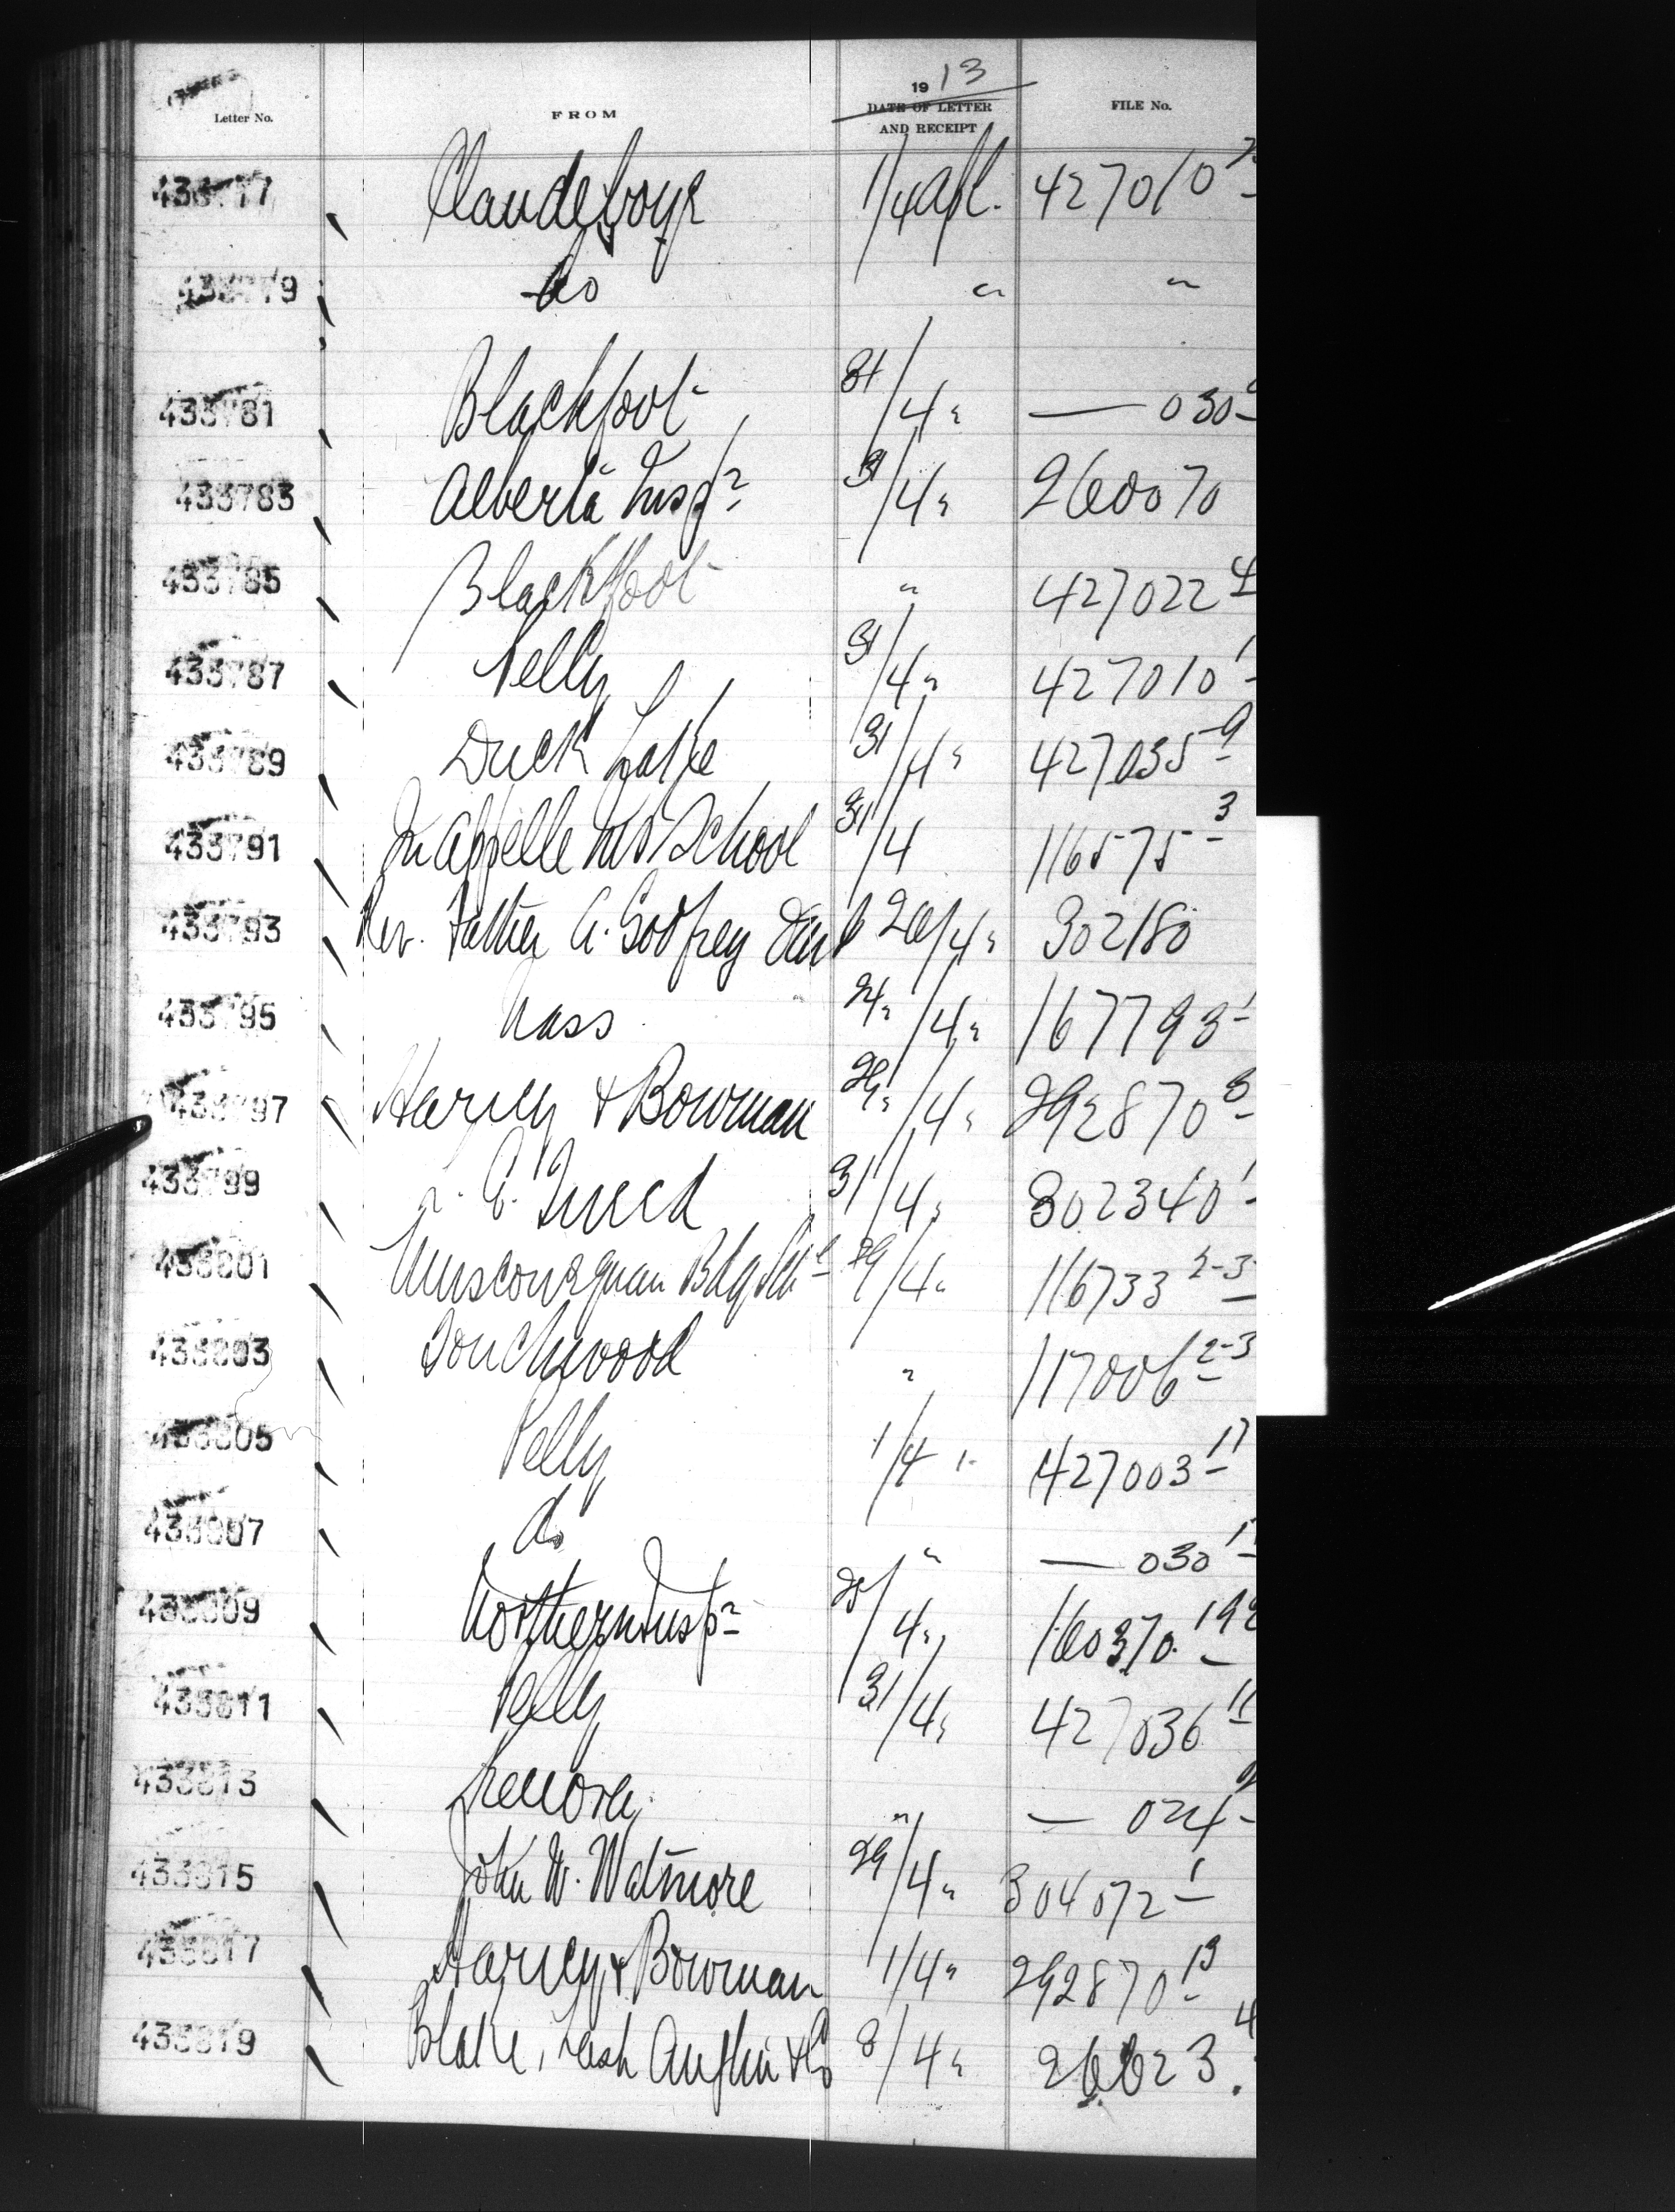 Letter No. FROM 1913 DATE OF LETTER AND RECEIPT FILE No.
433777 Clandeboye 1/4 Apl. 427010
433779 do " "
433781 Blackfoot 31/4 " — 030
433783 Alberta Insp 31/4 " 260070
433785 Blackfoot " 427022-4
433787 Pelly 31/4 " 427010-1
433789 Duck Lake 31/4 " 427035-9
433791 Qu'Appelle Ind School 31/4 116575-3
433793 Rev. Father A. Godfrey 26/4 " 302180
433795 Nass 24/4 " 167793-1
433797 Harvey & Bowman 29/4 " 292870-8
433799 31/4 " 302340-1
433801 Muscowequan Bdg Schl 29/4 " 116733 2-3
433803 Touchwood " 117006 2-3
433805 Pelly 1/4 " 427003-17
433807 do " — 030
433809 Northern Insp 25/4 " 160370
433811 Pelly 31/4 " 427036-11
433813 " — 024
433815 John W. Wetmore 29/4 " 304072-1
433817 Harvey & Bowman 1/4 " 292870-13
433819 Blake, Lash Anglin & Co 8/4 " 26623-4